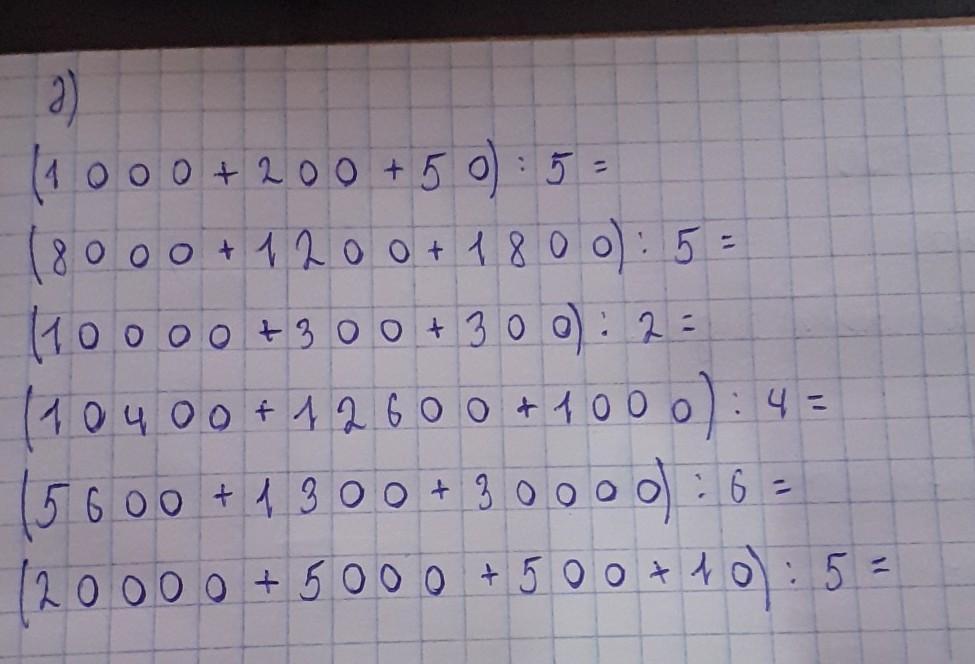 д)
(1000+200+50):5=
(8000+1200+1800):5=
(10000+300+300):2=
(10400+12600+1000):4=
(5600+1300+30000):6=
(20000+5000+500+10):5=